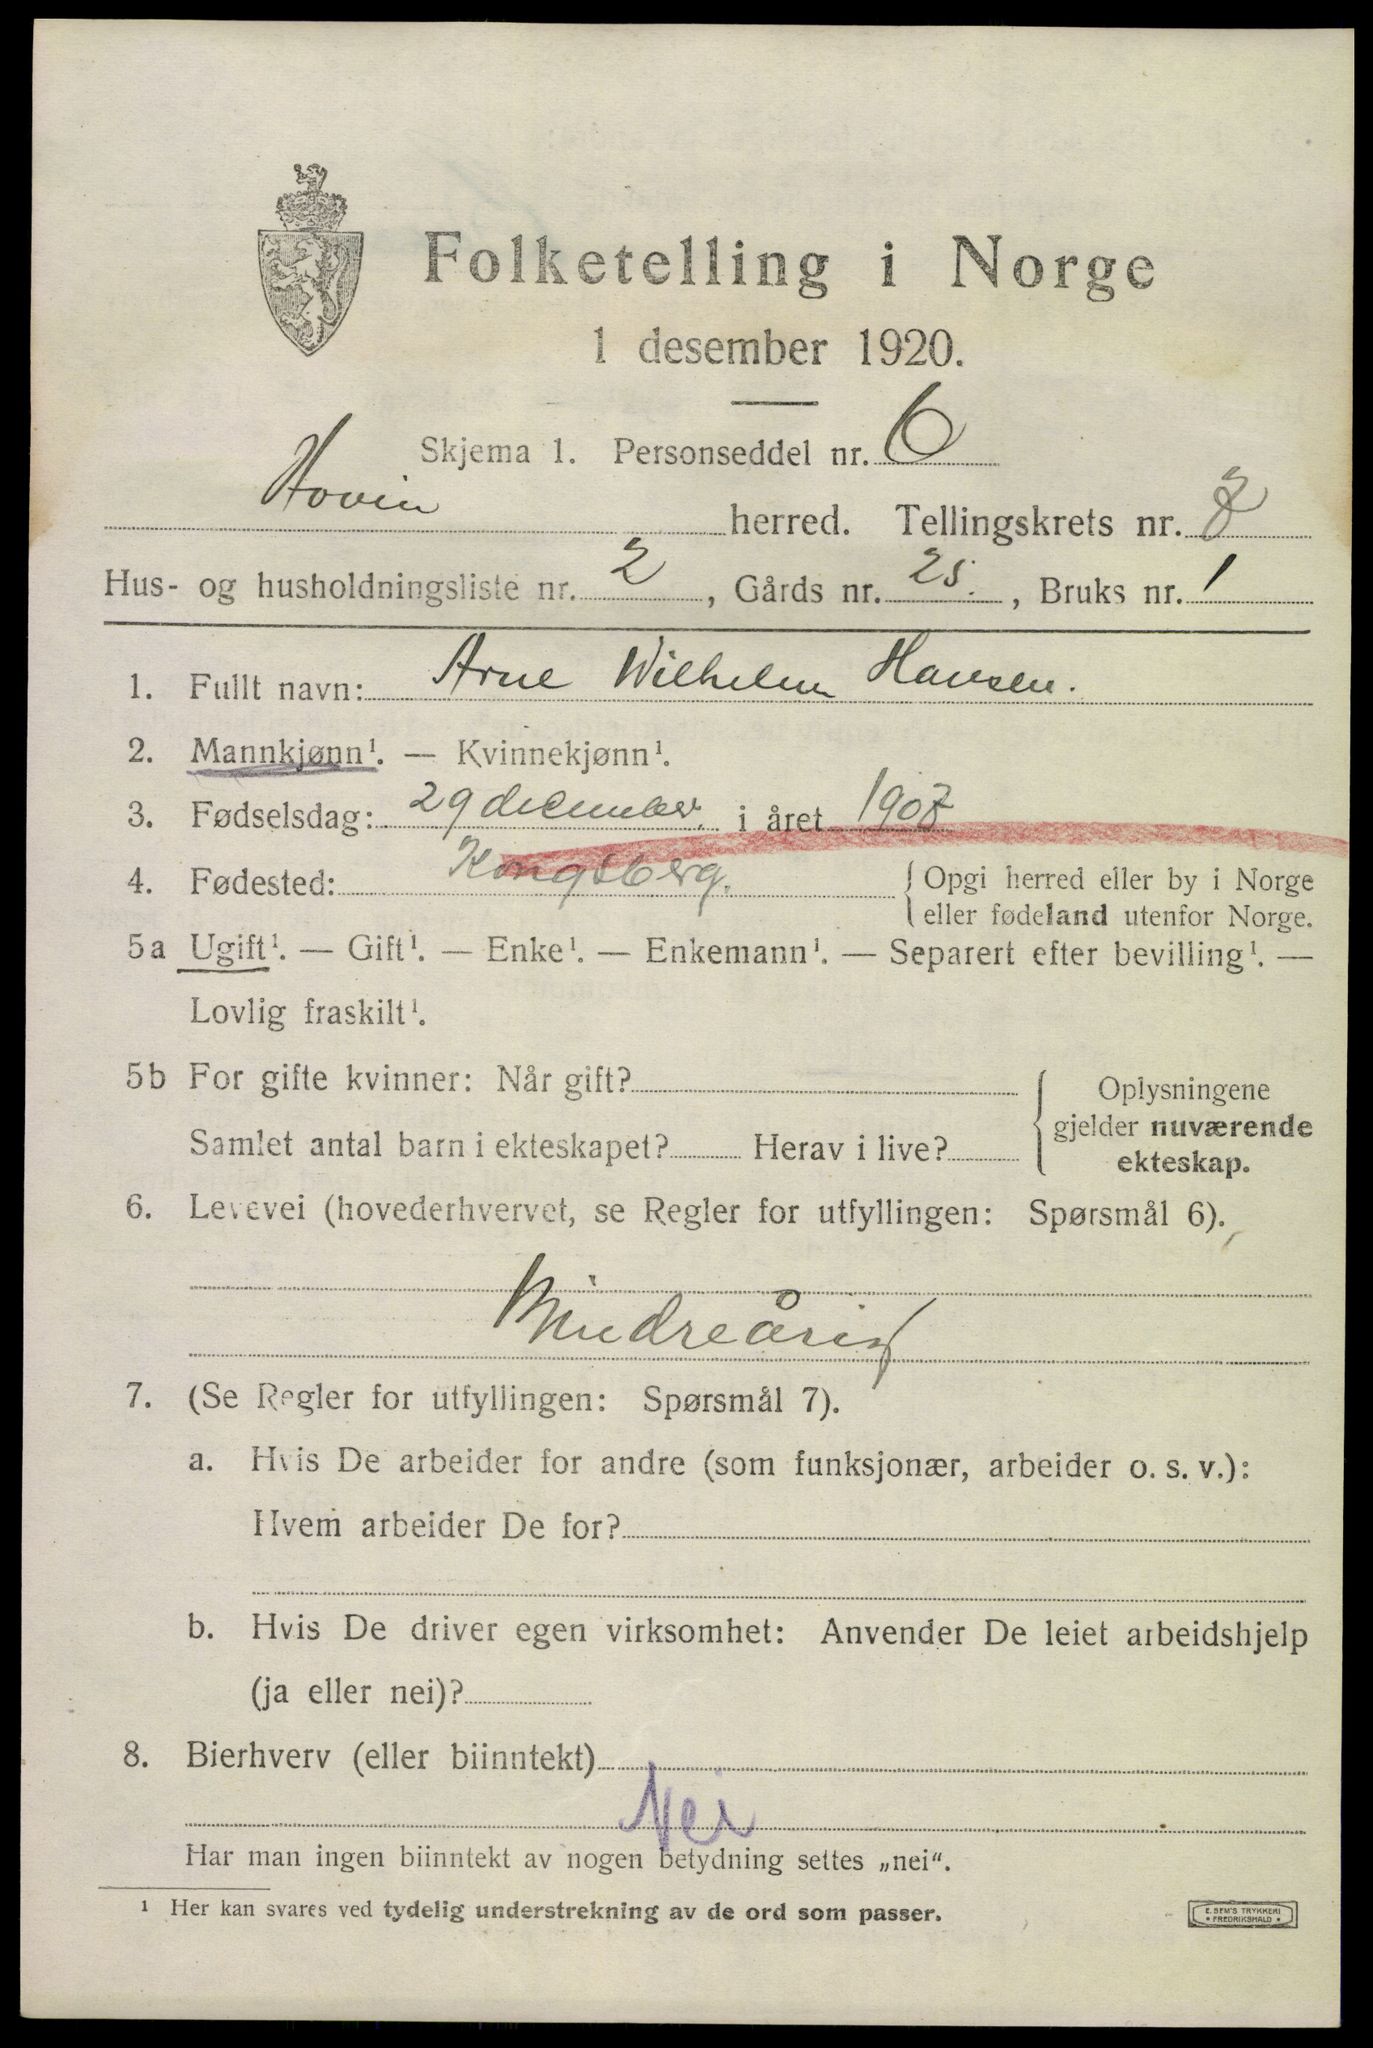 Folketelling i Norge
1 desember 1920.
Skjema 1. Personseddel nr. 6
Hovin herred. Tellingskrets nr. 7
Hus- og husholdningsliste nr. 2, Gårds nr. 25., Bruks nr. 1
1. Fullt navn: Arne Wilhelm Hansen.
2. Mannkjønn¹. — Kvinnekjønn¹.
3. Fødselsdag: 29 december. i året 1907
4. Fødested: Kongsberg. { Opgi herred eller by i Norge
eller fødeland utenfor Norge.
5a Ugift¹. — Gift¹. — Enke¹. — Enkemann¹. — Separert efter bevilling¹. —
Lovlig fraskilt¹.
5b For gifte kvinner: Når gift?
Samlet antal barn i ekteskapet? Herav i live?
{ Oplysningene
gjelder nuværende
ekteskap.
6. Levevei (hovederhvervet, se Regler for utfyllingen: Spørsmål 6).
Mindreårig
7. (Se Regler for utfyllingen: Spørsmål 7).
a. Hvis De arbeider for andre (som funksjonær, arbeider o. s. v.):
Hvem arbeider De for?
b. Hvis De driver egen virksomhet: Anvender De leiet arbeidshjelp
(ja eller nei)?
8. Bierhverv (eller biinntekt)
Nei
Har man ingen biinntekt av nogen betydning settes „nei".
¹ Her kan svares ved tydelig understrekning av de ord som passer.
E. SEM'S TRYKKERI
• FREDRIKSHALD •